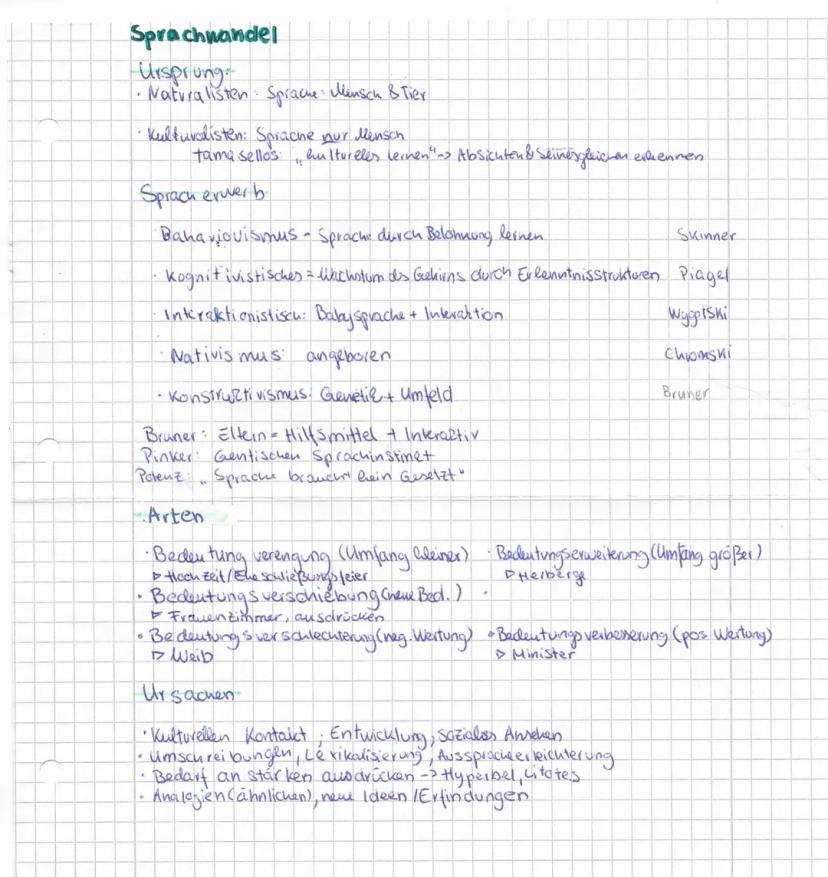 Sprachwandel
Ursprung:
· Naturalisten: Sprache: Mensch & Tier
· Kulturalisten: Sprache nur Mensch
tama sellos: „kulturelles lernen" -> Absichten & seinesgleichen erkennen
Spracherwerb
Bahaviouismus = Sprache durch Belohnung lernen Skinner
· Kognitivistisches = Wachstum des Gehirns durch Erkenntnisstrukturen Piagel
· Interaktionistisch: Babysprache + Interaktion Wygotski
· Nativismus: angeboren Chromski
· Konstruktivismus: Genetik + Umfeld Bruner
Bruner: Eltern = Hilfsmittel + Interaktiv
Pinker: Gentischen Sprachinstinet
Polenz: „Sprache braucht kein Gesetzt"
Arten
· Bedeutung verengung (Umfang kleiner) · Bedeutungserweiterung (Umfang größer)
▷ Hochzeit/Eheschließungsfeier ▷ Herberge
· Bedeutungsverschiebung (neue Bed.) ·
▷ Frauenzimmer, ausdrücken
· Bedeutungsverschlechterung (neg. Wertung) · Bedeutungsverbesserung (pos Wertung)
▷ Weib ▷ Minister
Ursachen
· Kulturellen Kontakt, Entwicklung, soziales Ansehen
· Umschreibungen, Lexikalisierung, Ausspracheerleichterung
· Bedarf an stärken ausdrücken -> Hyperbel, Litotes
· Analogien (ähnlichen), neue Ideen / Erfindungen